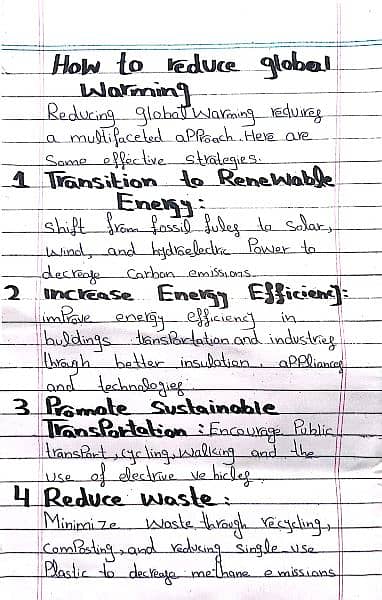 How to reduce global
Warming
Reducing global Warming requires
a multifaceted approach. Here are
Some effective strategies.
1 Transition to Renewable
Energy:
shift from fossil fules to Solar,
Wind, and hydroelectric Power to
decrease Carbon emissions.
2 increase Energy Efficiency:
improve energy efficiency in
buldings transportation and industries
through better insulation, appliances
and technologies.
3 Promote Sustainable
Transportation: Encourage Public
transport, cycling, walking and the
use of electrive vehicles.
4 Reduce waste:
Minimize Waste through recycling,
composting, and reducing single use
Plastic to decrease methane emissions